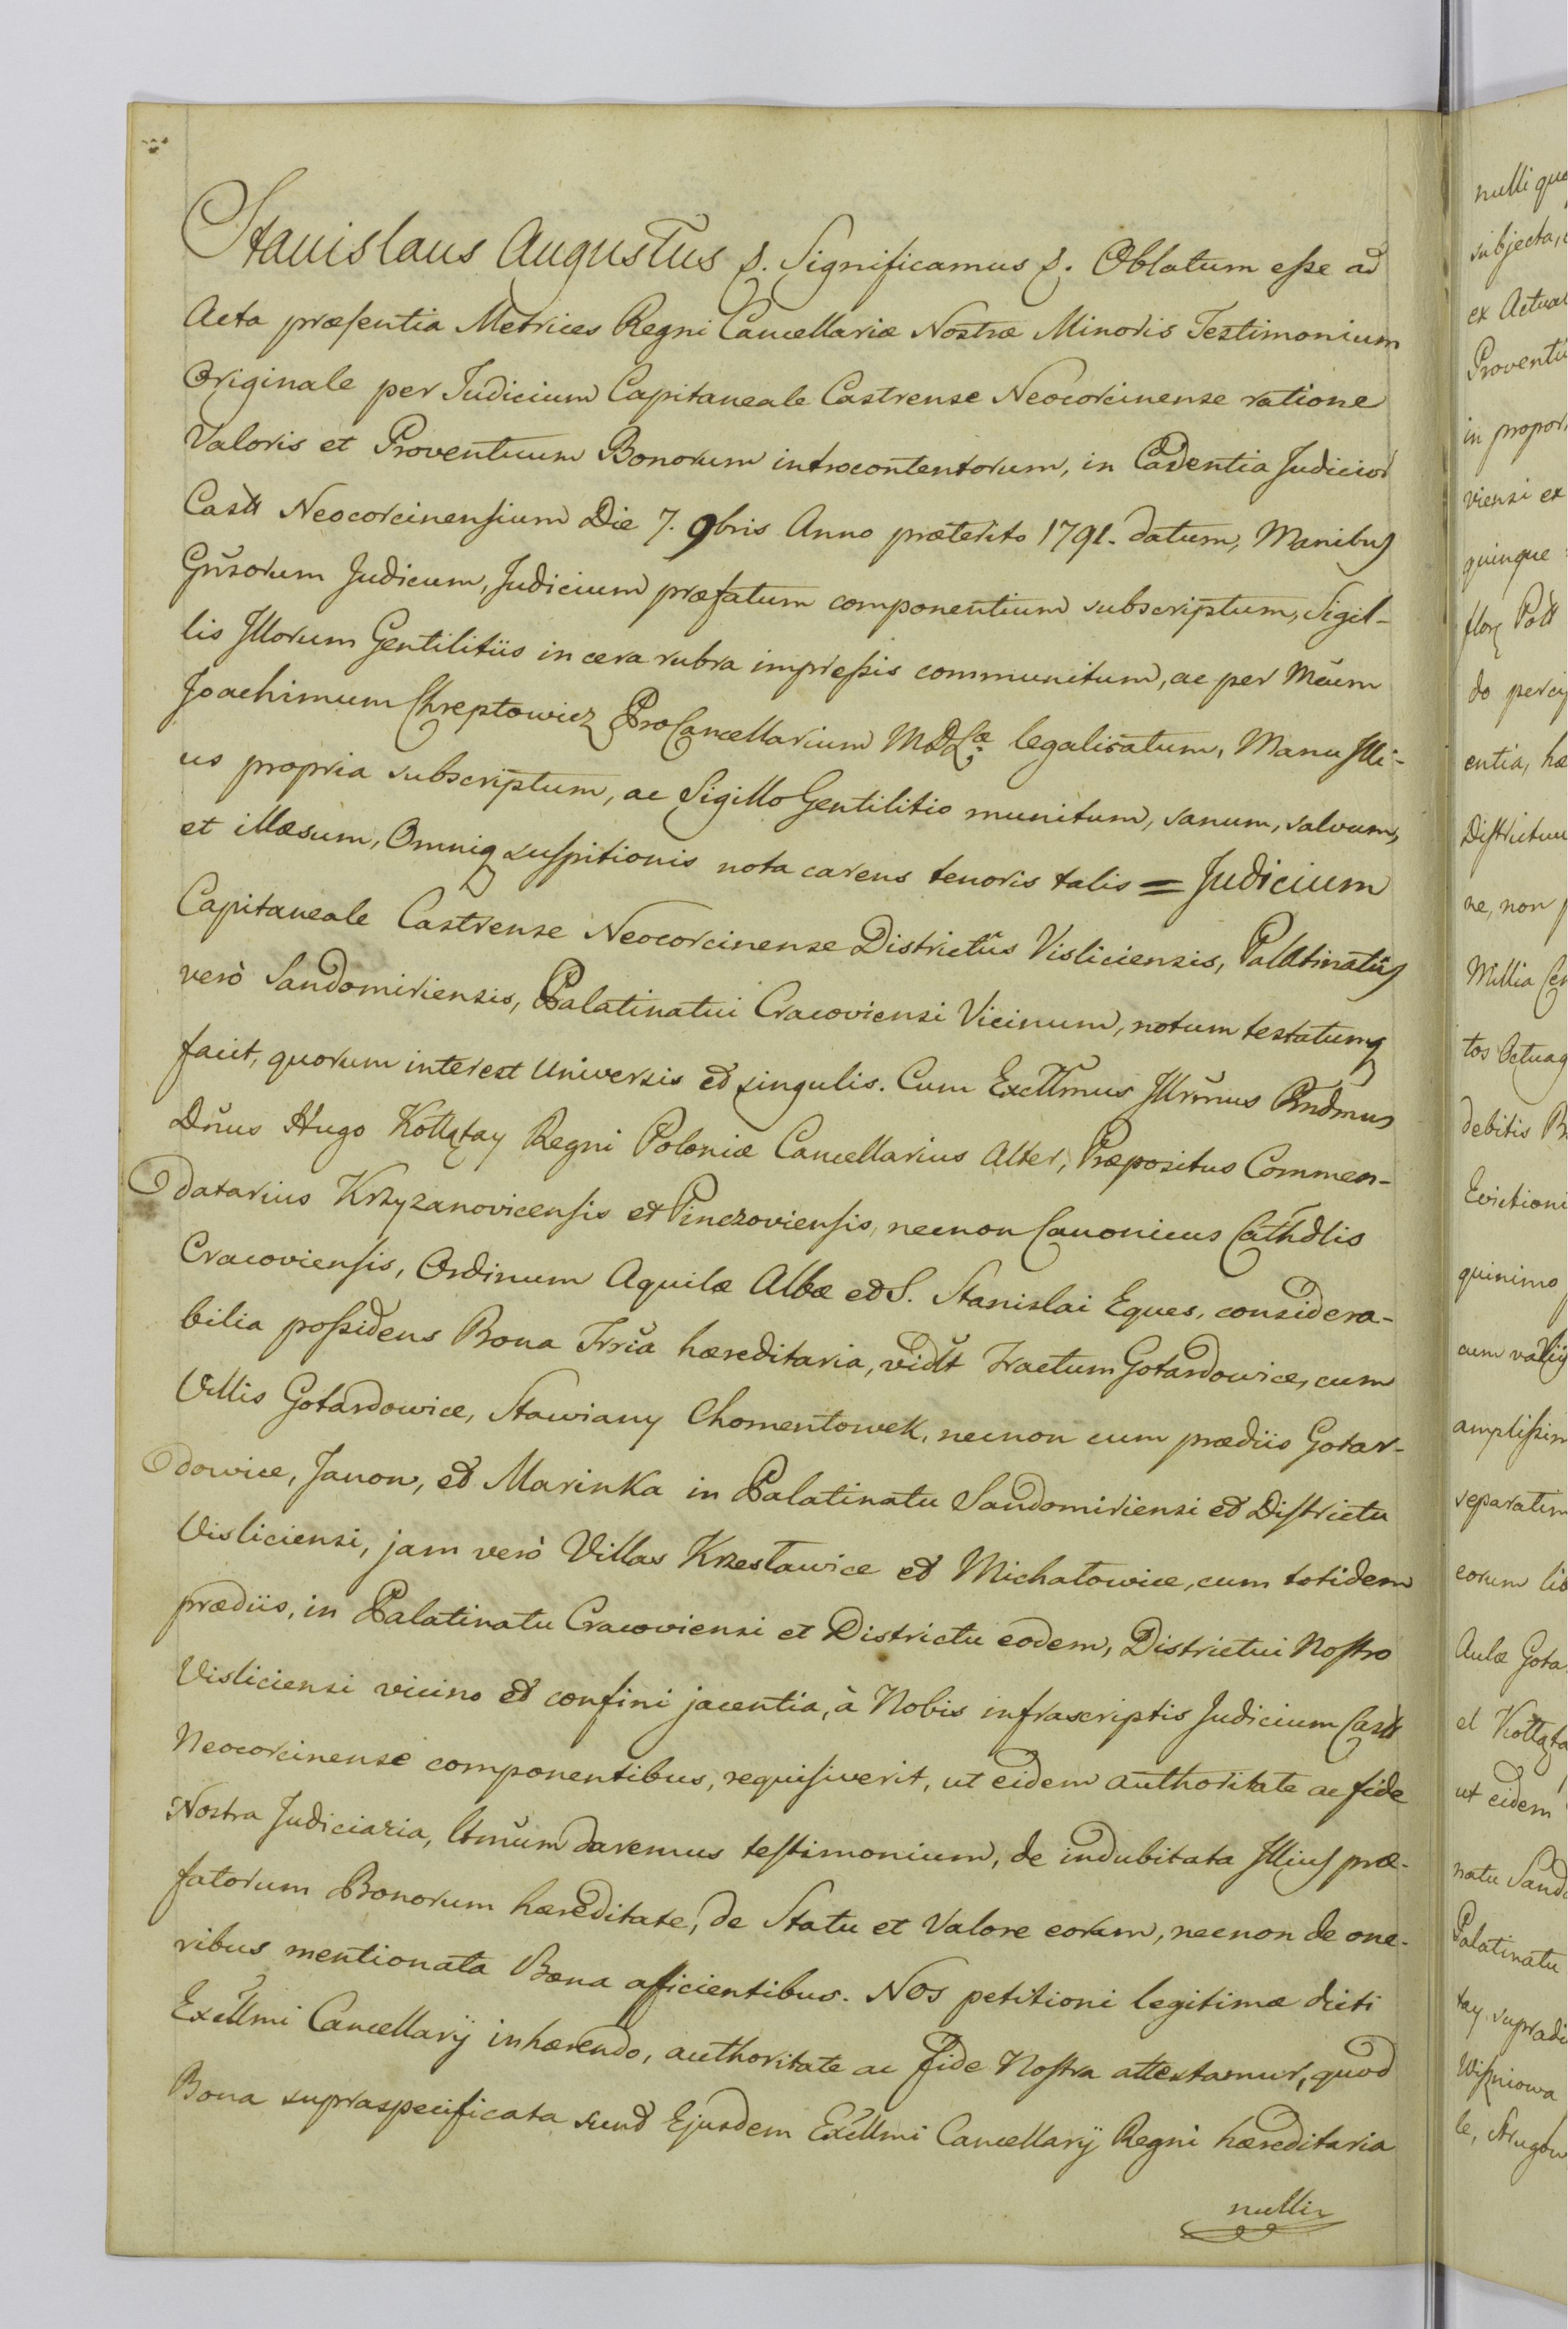 Stanislaus Augustus &. Significamus &. Oblatum eſse ad
Acta præſentia Metrices Regni Cancellariæ Nostræ Minoris Testimonium
Originale per Judicium Capitaneale Castrense Neocorcinense ratione
Valoris et Proventuum Bonorum introcontentorum, in Cadentia Judicior
Castt Neocorcinenſium Die 7. 9bris Anno præterito 1791. datum, Manibus
Gn̄sorum Judicum, Judicium præfatum componentium subscriptum, Sigil-
lis Illorum Gentilitiis in cera rubra impreſsis communitum, ac per Mcūm
Joachimum Chreptowicz ProCancellarium MDLæ. legalisatum, Manu Illi-
us propria subscriptum, ac Sigillo Gentilitio munitum, sanum, salvum,
et illæsum, Omniq suſpitionis nota carens tenoris talis = Judicium
Capitaneale Castrense Neocorcinense Districtûs Visliciensis, Palatinatûs
verò Sandomiriensis, Palatinatui Cracoviensi Vicinum, notum testatumq
facit, quorum interest Universis et singulis. Cum Excllm̄us Illrm̄us Rndm̄us
Dn̄us Hugo Kołłątay Regni Poloniæ Cancellarius Alter, Præpositus Commen-
datarius Krzyzanovicenſis et Pinczovienſis, necnon Canonicus Cathd̄lis
Cracovienſis, Ordinum Aquilæ Albæ et S. Stanislai Eques, considera-
bilia poſsidens Bona Trrīa hæreditaria, vidl̄t Tractum Gotardowice, cum
Villis Gotardowice, Stawiany Chomentowek, necnon cum prædiis Gotar-
dowice, Janow, et Marinka in Palatinatu Sandomiriensi et Diſtrictu
Visliciensi, jam verò Villas Krzesławice et Michałowice, cum totidem
prædiis, in Palatinatu Cracoviensi et Districtu eodem, Districtui Noſtro
Visliciensi vicino et confini jacentia, à Nobis infrascriptis Judicium Castt
Neocorcinense componentibus, requiſiverit, ut eidem authoritate ac fide
Nostra Judiciaria, ltm̄um daremus teſtimonium, de indubitata Illius præ-
fatorum Bonorum hæreditate, de Statu et Valore eorum, necnon de one-
ribus mentionata Bona afficientibus. Nos petitioni legitimæ dicti
Excllm̄i Cancellarij inhærendo, authoritate ac fide Noſtra attestamur, quod
Bona supraspecificata sunt Ejusdem Excllm̄i Cancellarij Regni hæreditaria
nulli
nulli
subjecta,
ex
in
viensi ex
quinque
Pott
do
entia,
ne, non
Millia
tos
debitis
quinimo
cum
separatim
eorum
Aulæ
et
ut eidem
natu
Palatinatu
tay
Wiſzniowa
le,